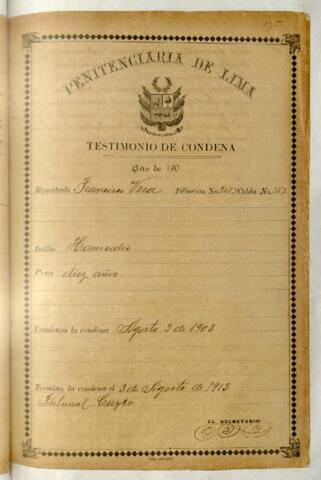 PENITENCIARÍA DE LIMA
TESTIMONIO DE CONDENA
Año de 190
Rematado Francisco Vera Filiación No. Celda No. 257
Delito Homicidio
Pena diez años
Comienza la condena Agosto 3 de 1903
Termina la condena el 3 de Agosto de 1913
Tribunal Cuzco
EL SECRETARIO